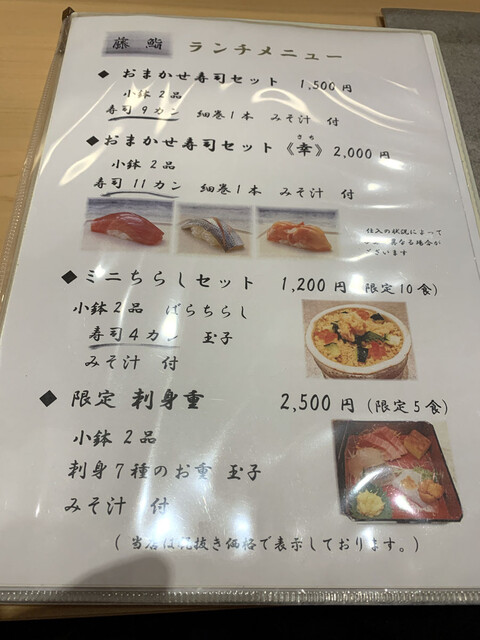 藤鮨 ランチメニュー
◆ おまかせ寿司セット 1,500円
小鉢2品
寿司9カン 細巻1本 みそ汁 付
◆ おまかせ寿司セット《幸》2,000円
さち
小鉢2品
寿司11カン 細巻1本 みそ汁 付
仕入の状況によって
異なる場合が
ございます
◆ ミニちらしセット 1,200円(限定10食)
小鉢2品 ばらちらし
寿司4カン 玉子
みそ汁 付
◆ 限定 刺身重 2,500円(限定5食)
小鉢2品
刺身7種のお重 玉子
みそ汁 付
(当店は税抜き価格で表示しております。)